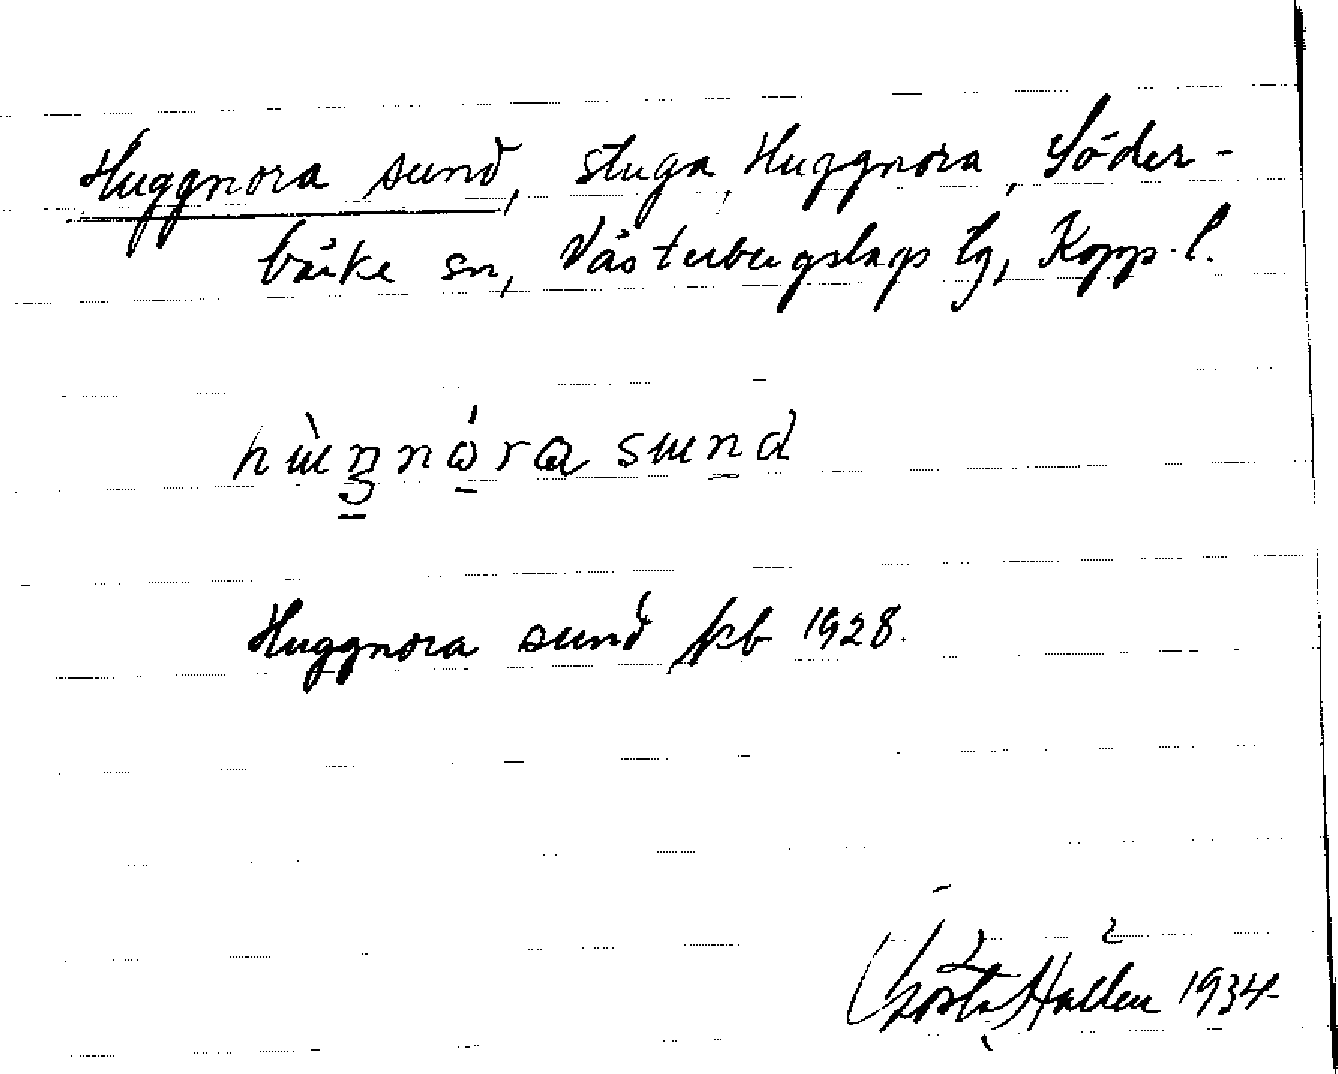 Huggnora sund, stuga, Huggnora, Söder-
bärke sn, Västerbergslags tg, Kopp. l.
hùŋnó̱ra sund
Huggnora sund jkb 1928.
Gösta Hallén 1934